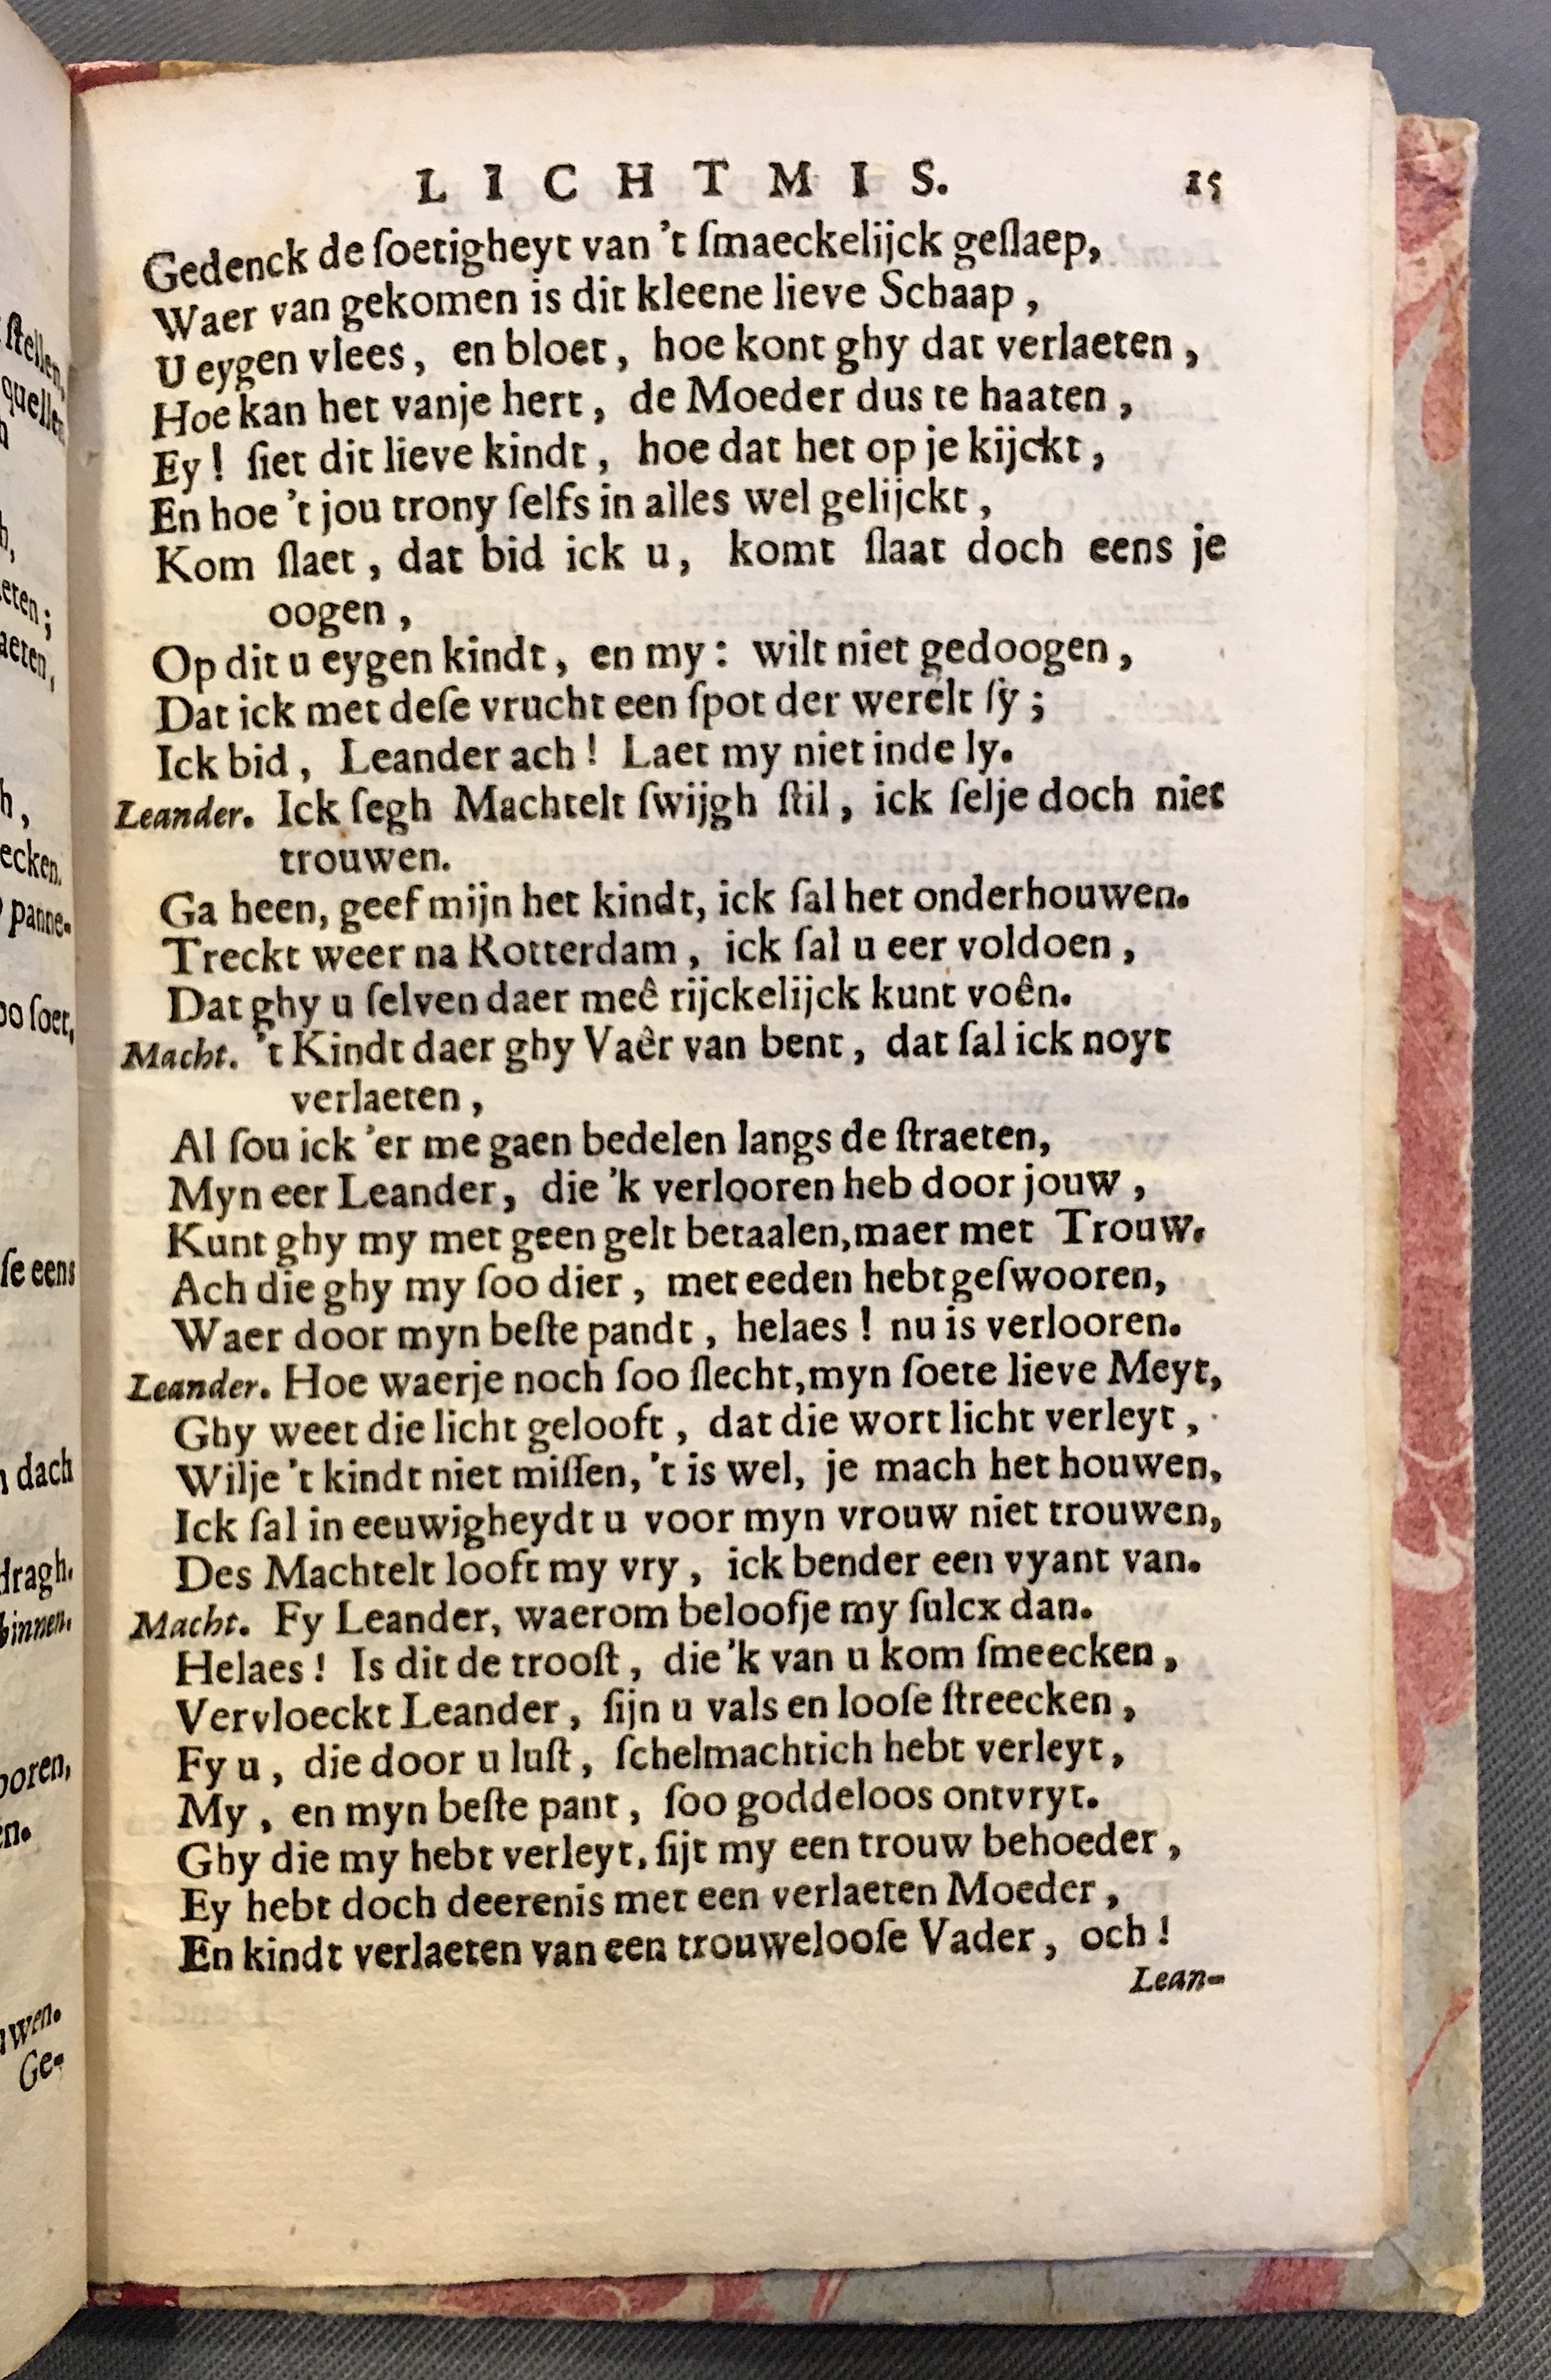 LICHTMIS. 15
Gedenck de ſoetigheyt van 't ſmaeckelijck geſlaep,
Waer van gekomen is dit kleene lieve Schaap,
U eygen vlees, en bloet, hoe kont ghy dat verlaeten,
Hoe kan het vanje hert, de Moeder dus te haaten,
Ey! ſiet dit lieve kindt, hoe dat het op je kijckt,
En hoe 't jou trony ſelfs in alles wel gelijckt,
Kom ſlaet, dat bid ick u, komt ſlaat doch eens je
oogen,
Op dit u eygen kindt, en my: wilt niet gedoogen,
Dat ick met deſe vrucht een ſpot der werelt ſy;
Ick bid, Leander ach! Laet my niet inde ly.
Leander. Ick ſegh Machtelt ſwijgh ſtil, ick ſelje doch niet
trouwen.
Ga heen, geef mijn het kindt, ick ſal het onderhouwen.
Treckt weer na Rotterdam, ick ſal u eer voldoen,
Dat ghy u ſelven daer meê rijckelijck kunt voên.
Macht. 't Kindt daer ghy Vaêr van bent, dat ſal ick noyt
verlaeten,
Al ſou ick 'er me gaen bedelen langs de ſtraeten,
Myn eer Leander, die 'k verlooren heb door jouw,
Kunt ghy my met geen gelt betaalen, maer met Trouw.
Ach die ghy my ſoo dier, met eeden hebt geſwooren,
Waer door myn beſte pandt, helaes! nu is verlooren.
Leander. Hoe waerje noch ſoo ſlecht, myn ſoete lieve Meyt,
Ghy weet die licht gelooft, dat die wort licht verleyt,
Wilje 't kindt niet miſſen, 't is wel, je mach het houwen,
Ick ſal in eeuwigheydt u voor myn vrouw niet trouwen,
Des Machtelt looft my vry, ick bender een vyant van.
Macht. Fy Leander, waerom beloofje my ſulcx dan.
Helaes! Is dit de trooſt, die 'k van u kom ſmeecken,
Vervloeckt Leander, ſijn u vals en looſe ſtreecken,
Fy u, die door u luſt, ſchelmachtich hebt verleyt,
My, en myn beſte pant, ſoo goddeloos ontvryt.
Ghy die my hebt verleyt, ſijt my een trouw behoeder,
Ey hebt doch deerenis met een verlaeten Moeder,
En kindt verlaeten van een trouwelooſe Vader, och!
Lean-